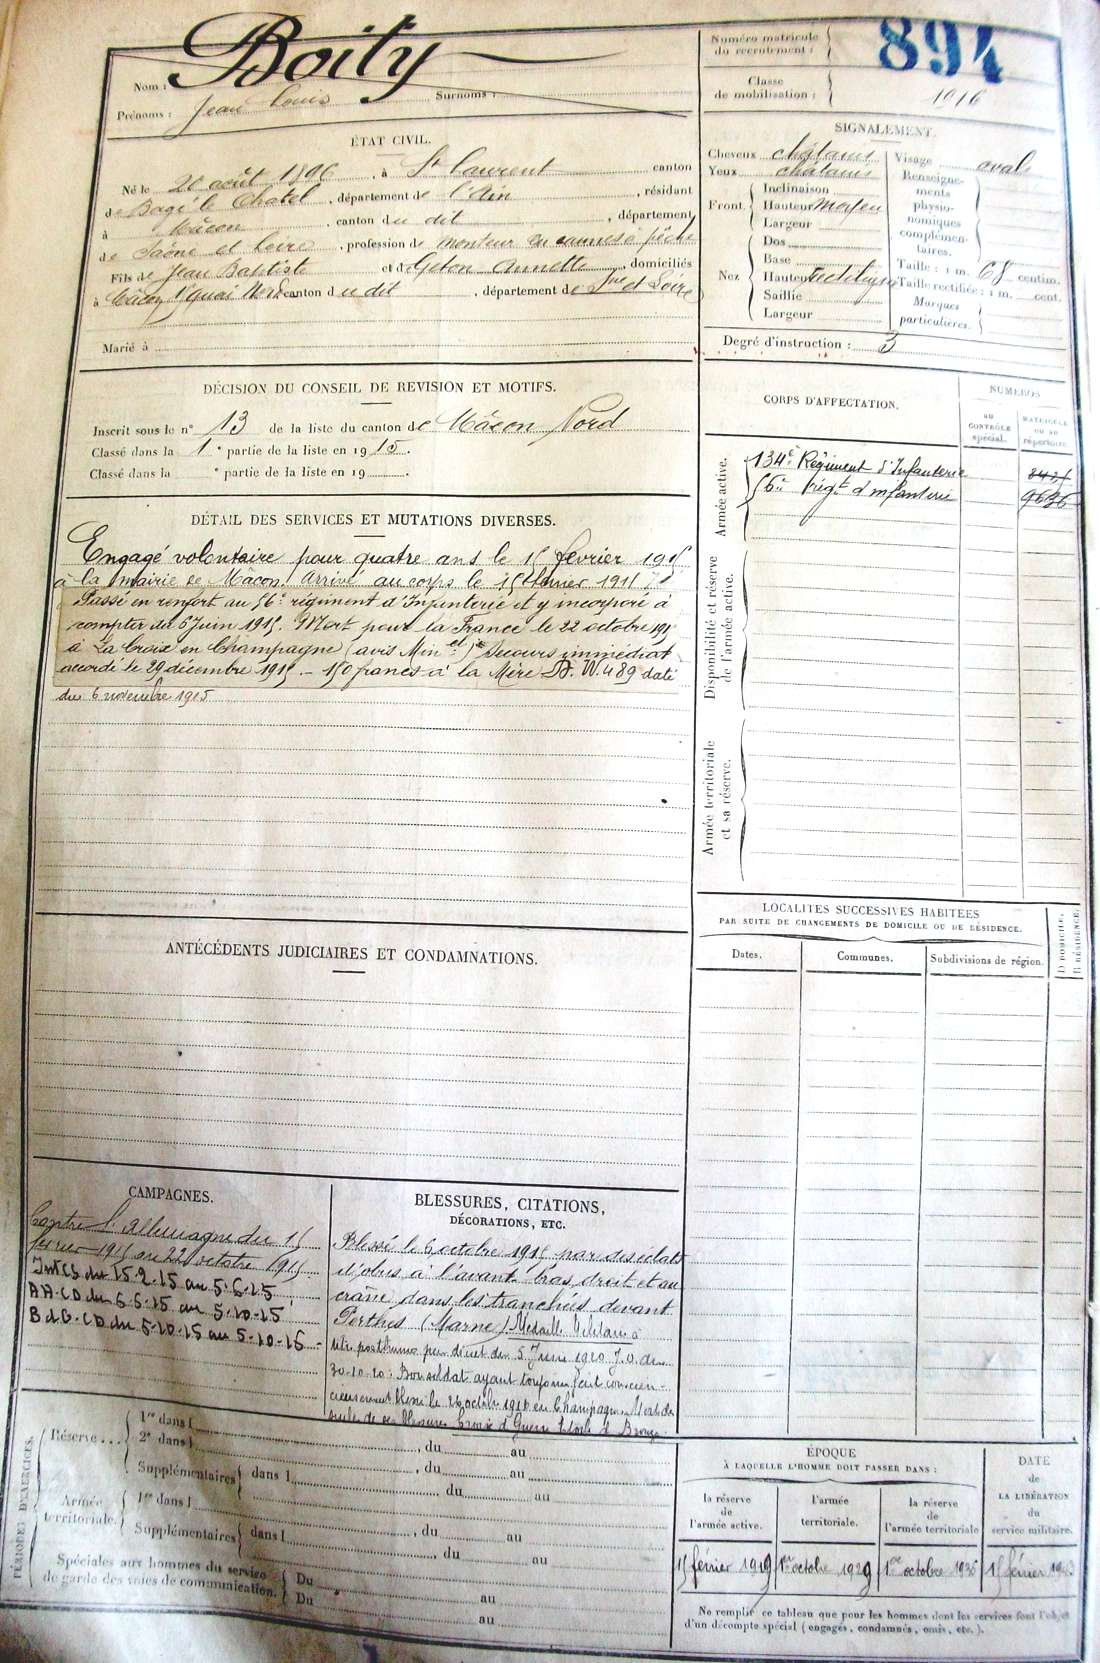 Nom : Boity
Prénoms : Jean Louis Surnoms :
Numéro matricule du recrutement : 894
Classe de mobilisation : 1916
ÉTAT CIVIL.
Né le 20 août 1896, à St Laurent canton
de Bagé le Chatel, département de l'Ain, résidant
à Mâcon, canton du dit, département
de Saône et Loire, profession de monteur en cannes à pêche
Fils de Jean Baptiste et de Geton Annette, domiciliés
à Mâcon, quai Nord canton du dit, département de Sne et Loire
Marié à
SIGNALEMENT.
Cheveux châtains
Yeux châtains
Front { Inclinaison
Hauteur moyen
Largeur
Nez { Dos
Base
Hauteur rectiligne
Saillie
Largeur
Visage oval
Renseignements physionomiques complémentaires.
Taille : 1 m. 68 centim.
Taille rectifiée : 1 m. cent.
Marques particulières.
Degré d'instruction : 3
DÉCISION DU CONSEIL DE REVISION ET MOTIFS.
Inscrit sous le n° 13 de la liste du canton de Mâcon Nord
Classé dans la 1e partie de la liste en 1915.
Classé dans la e partie de la liste en 19
CORPS D'AFFECTATION.
NUMÉROS
au CONTRÔLE spécial.
MATRICULE OU AU répertoire.
Armée active.
134e Régiment d'Infanterie
56e régt d'infanterie 9636
Disponibilité et réserve de l'armée active.
Armée territoriale et sa réserve.
DÉTAIL DES SERVICES ET MUTATIONS DIVERSES.
Engagé volontaire pour quatre ans le 15 février 1915
à la mairie de Mâcon. Arrivé au corps le 15 février 1915
Passé en renfort au 56e régiment d'Infanterie et y incorporé à
compter du 6 Juin 1915. Mort pour la France le 22 octobre 1915
à La Croix en Champagne (avis Minel) Secours immédiat
accordé le 29 décembre 1915. - 150 francs à la Mère D. W. 489 daté
du 6 novembre 1915
LOCALITÉS SUCCESSIVES HABITÉES
PAR SUITE DE CHANGEMENTS DE DOMICILE OU DE RÉSIDENCE.
Dates.
Communes.
Subdivisions de région.
D DOMICILE.
R RÉSIDENCE.
ANTÉCÉDENTS JUDICIAIRES ET CONDAMNATIONS.
CAMPAGNES.
Contre l'Allemagne du 15
février 1915 au 22 octobre 1915
Int CS du 15.2.15 au 5.6.15
AA.CD du 6.6.15 au 5-10-15
B de G.CD du 5-10-15 au 5-10-16
BLESSURES, CITATIONS,
DÉCORATIONS, ETC.
Blessé le 6 octobre 1915 par des éclats
d'obus à l'avant bras droit et au
crâne dans les tranchées devant
Perthes (Marne) Médaille Militaire à
titre posthume par décret du 5 Juin 1920 J.O. du
30-10-20 : Bon soldat ayant toujours fait conscien-
cieusement blessé le 26 octobre 1915 en Champagne. Mort des
suites de ses blessures Croix de Guerre Etoile de Bronze.
PÉRIODES D'EXERCICES.
Réserve... { 1re dans l , du au
2e dans l , du au
Supplémentaires { dans l du au
Armée territoriale. { 1re dans l , du au
Supplémentaires { dans l du au
Spéciales aux hommes du service
de garde des voies de communication. { Du au
Du au
ÉPOQUE
À LAQUELLE L'HOMME DOIT PASSER DANS :
la réserve de l'armée active.
l'armée territoriale.
la réserve de l'armée territoriale
DATE de LA LIBÉRATION du service militaire.
15 février 1919
1er octobre 1929
1er octobre 1936
15 février 1943
Ne remplir ce tableau que pour les hommes dont les services font l'objet
d'un décompte spécial (engagés, condamnés, omis, etc.).